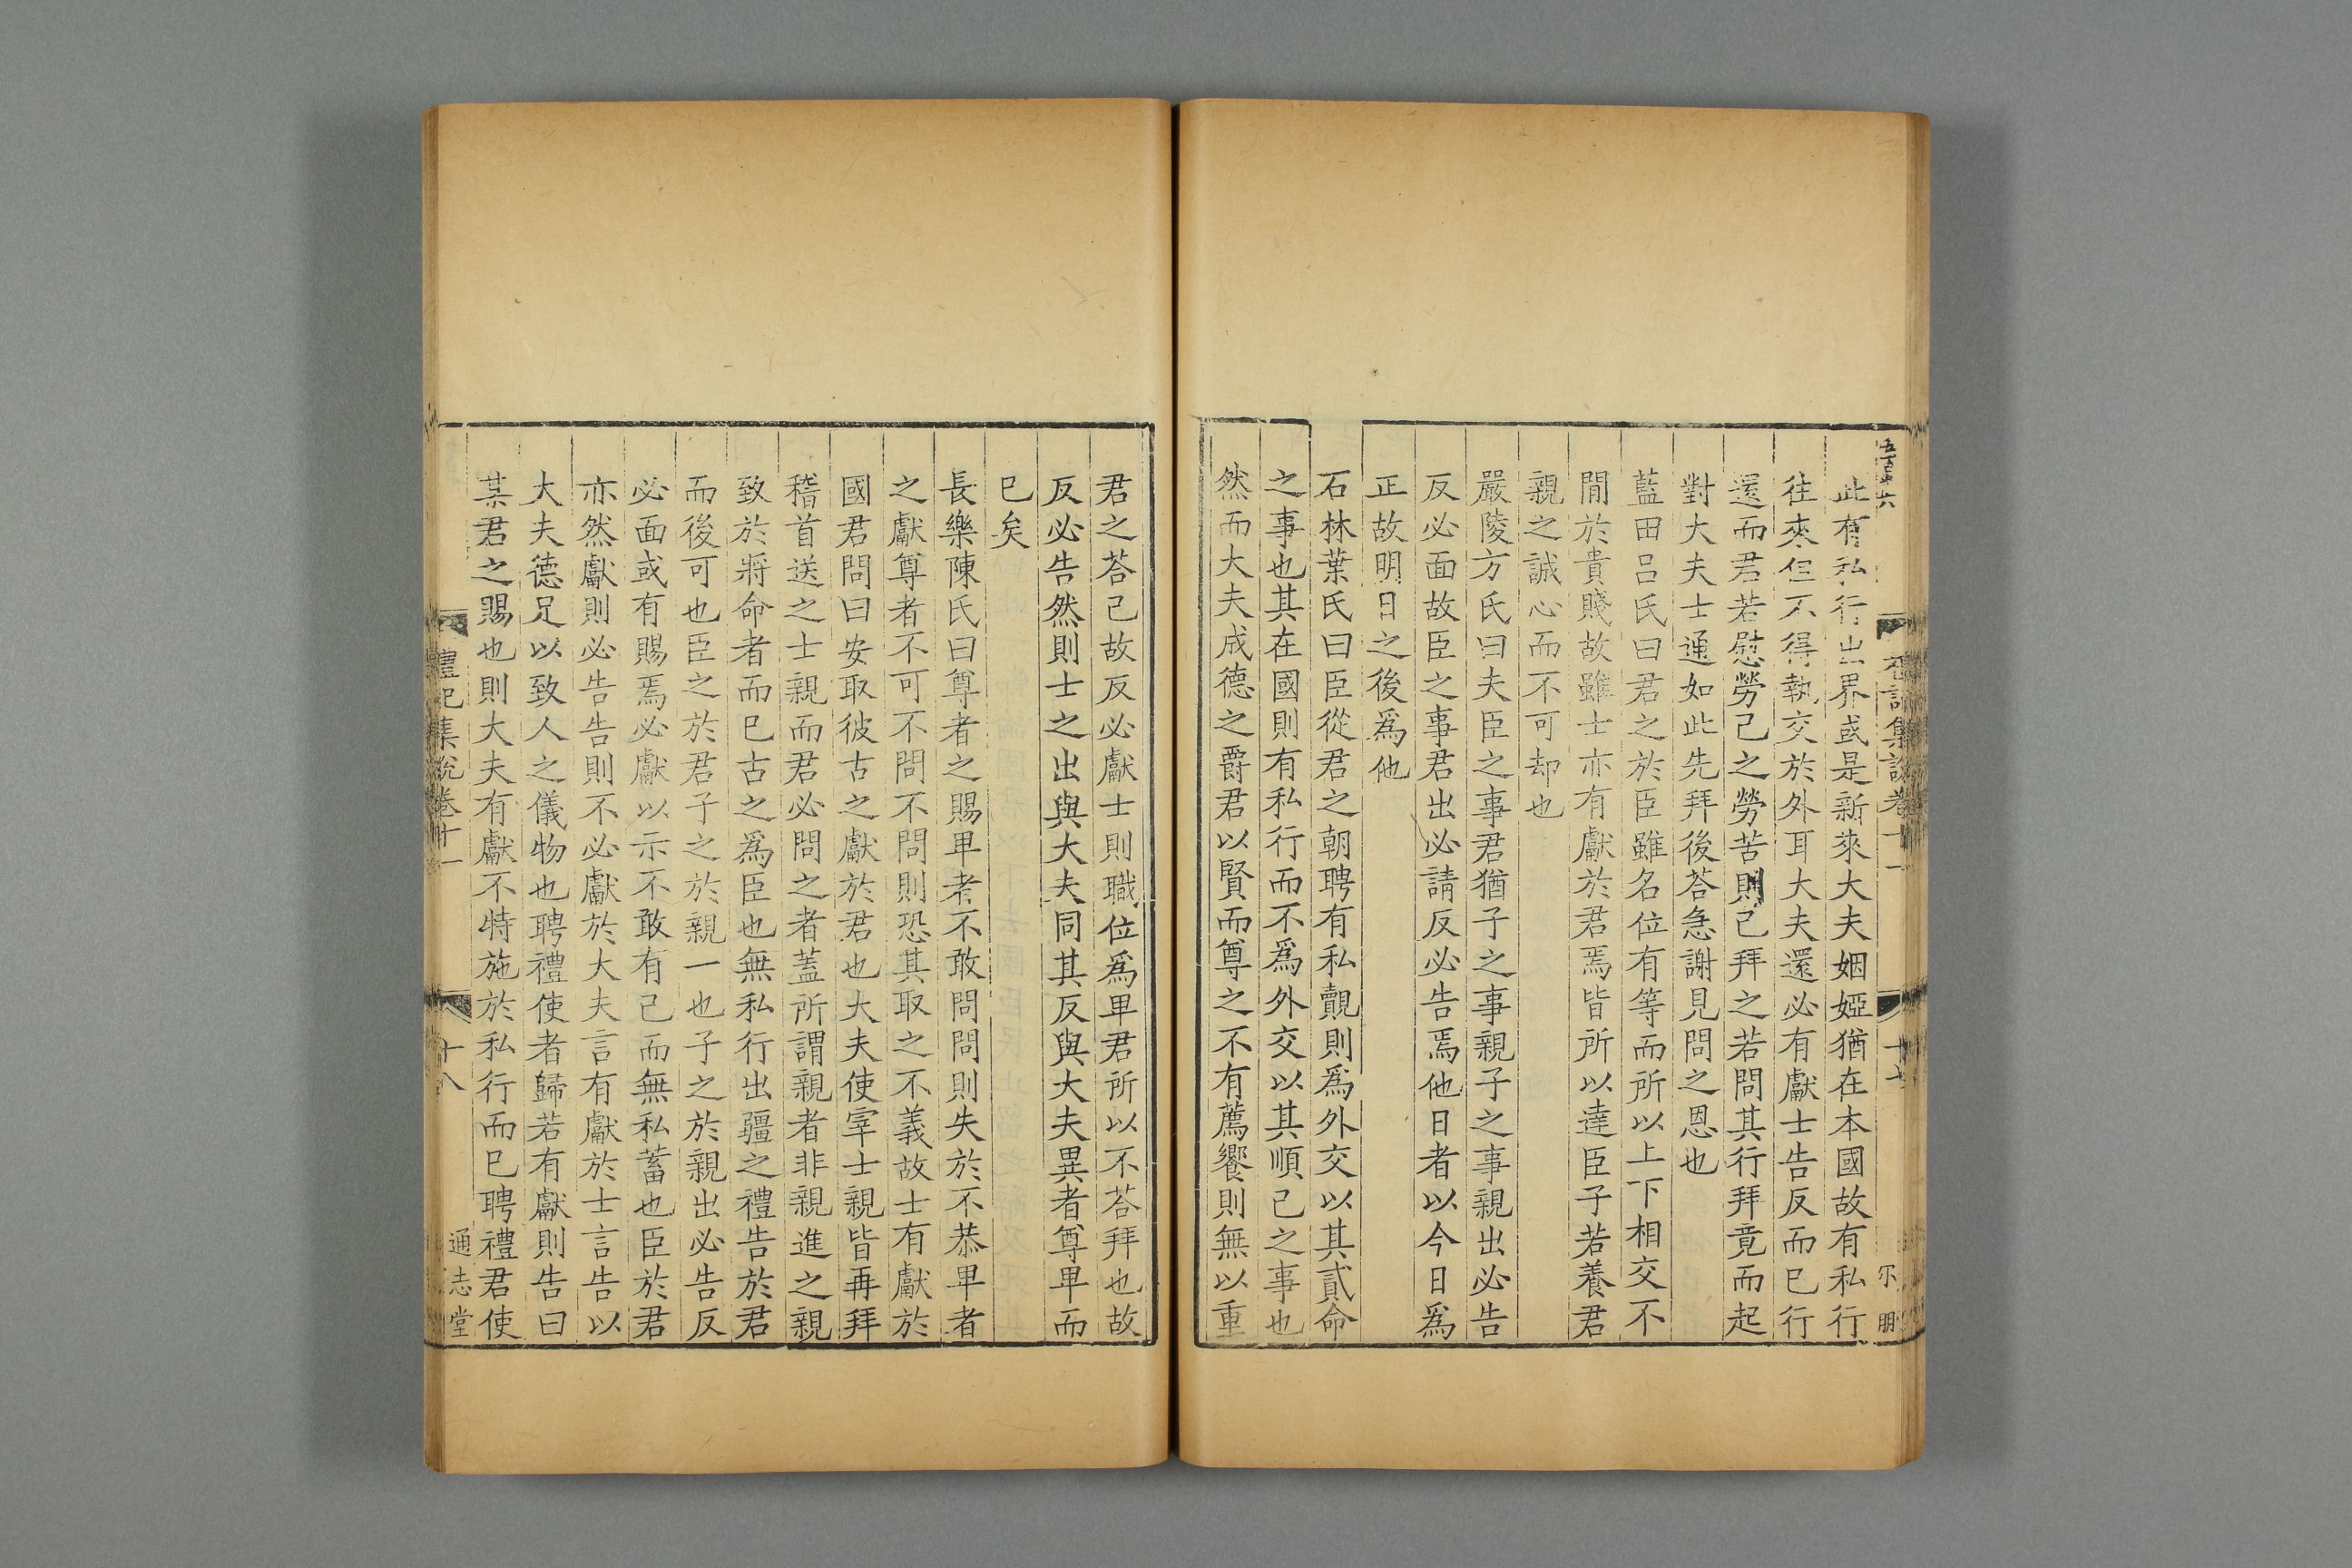 此有私行出界或是新來大夫姻婭猶在本國故有私行
往來但不得執交於外耳大夫還必有獻士告反而已行
還而君若慰勞己之勞苦則己拜之若問其行拜竟而起
對大夫士通如此先拜後荅急謝見問之恩也
藍田呂氏曰君之於臣雖名位有等而所以上下相交不
閒於貴賤故雖士亦有獻於君焉皆所以達臣子若養君
親之誠心而不可却也
嚴陵方氏曰夫臣之事君猶子之事親子之事親出必告
反必面故臣之事君出必請反必告焉他日者以今日爲
正故明日之後爲他
石林葉氏曰臣從君之朝聘有私覿則爲外交以其貳命
之事也其在國則有私行而不爲外交以其順己之事也
然而大夫成德之爵君以賢而尊之不有薦饗則無以重
君之荅己故反必獻士則職位爲卑君所以不荅拜也故
反必告然則士之出與大夫同其反與大夫異者尊卑而
已矣
長樂陳氏曰尊者之賜卑者不敢問問則失於不恭卑者
之獻尊者不可不問不問則恐其取之不義故士有獻於
國君問曰安取彼古之獻於君也大夫使宰士親皆再拜
稽首送之士親而君必問之者蓋所謂親者非親進之親
致於將命者而已古之爲臣也無私行出疆之禮告於君
而後可也臣之於君子之於親一也子之於親出必告反
必面或有賜焉必獻以示不敢有己而無私蓄也臣於君
亦然獻則必告告則不必獻於大夫言有獻於士言告以
大夫德足以致人之儀物也聘禮使者歸若有獻則告曰
某君之賜也則大夫有獻不特施於私行而已聘禮君使
禮記集說卷十一
十八
通志堂